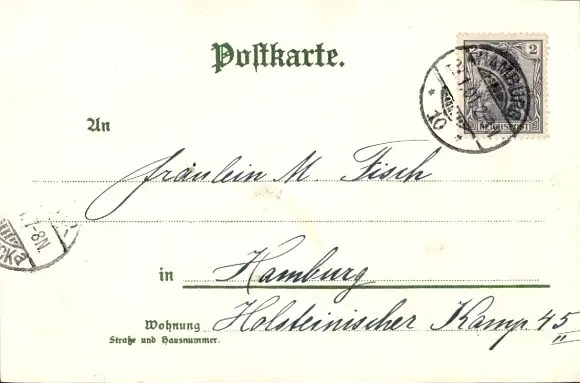 Postkarte.
2
REICHSPOST
HAMBURG
* 10 *
An
Fräulein M. Fisch
7-8N.
in Hamburg
Wohnung Holsteinischer Kamp 45 II
Straße und Hausnummer.